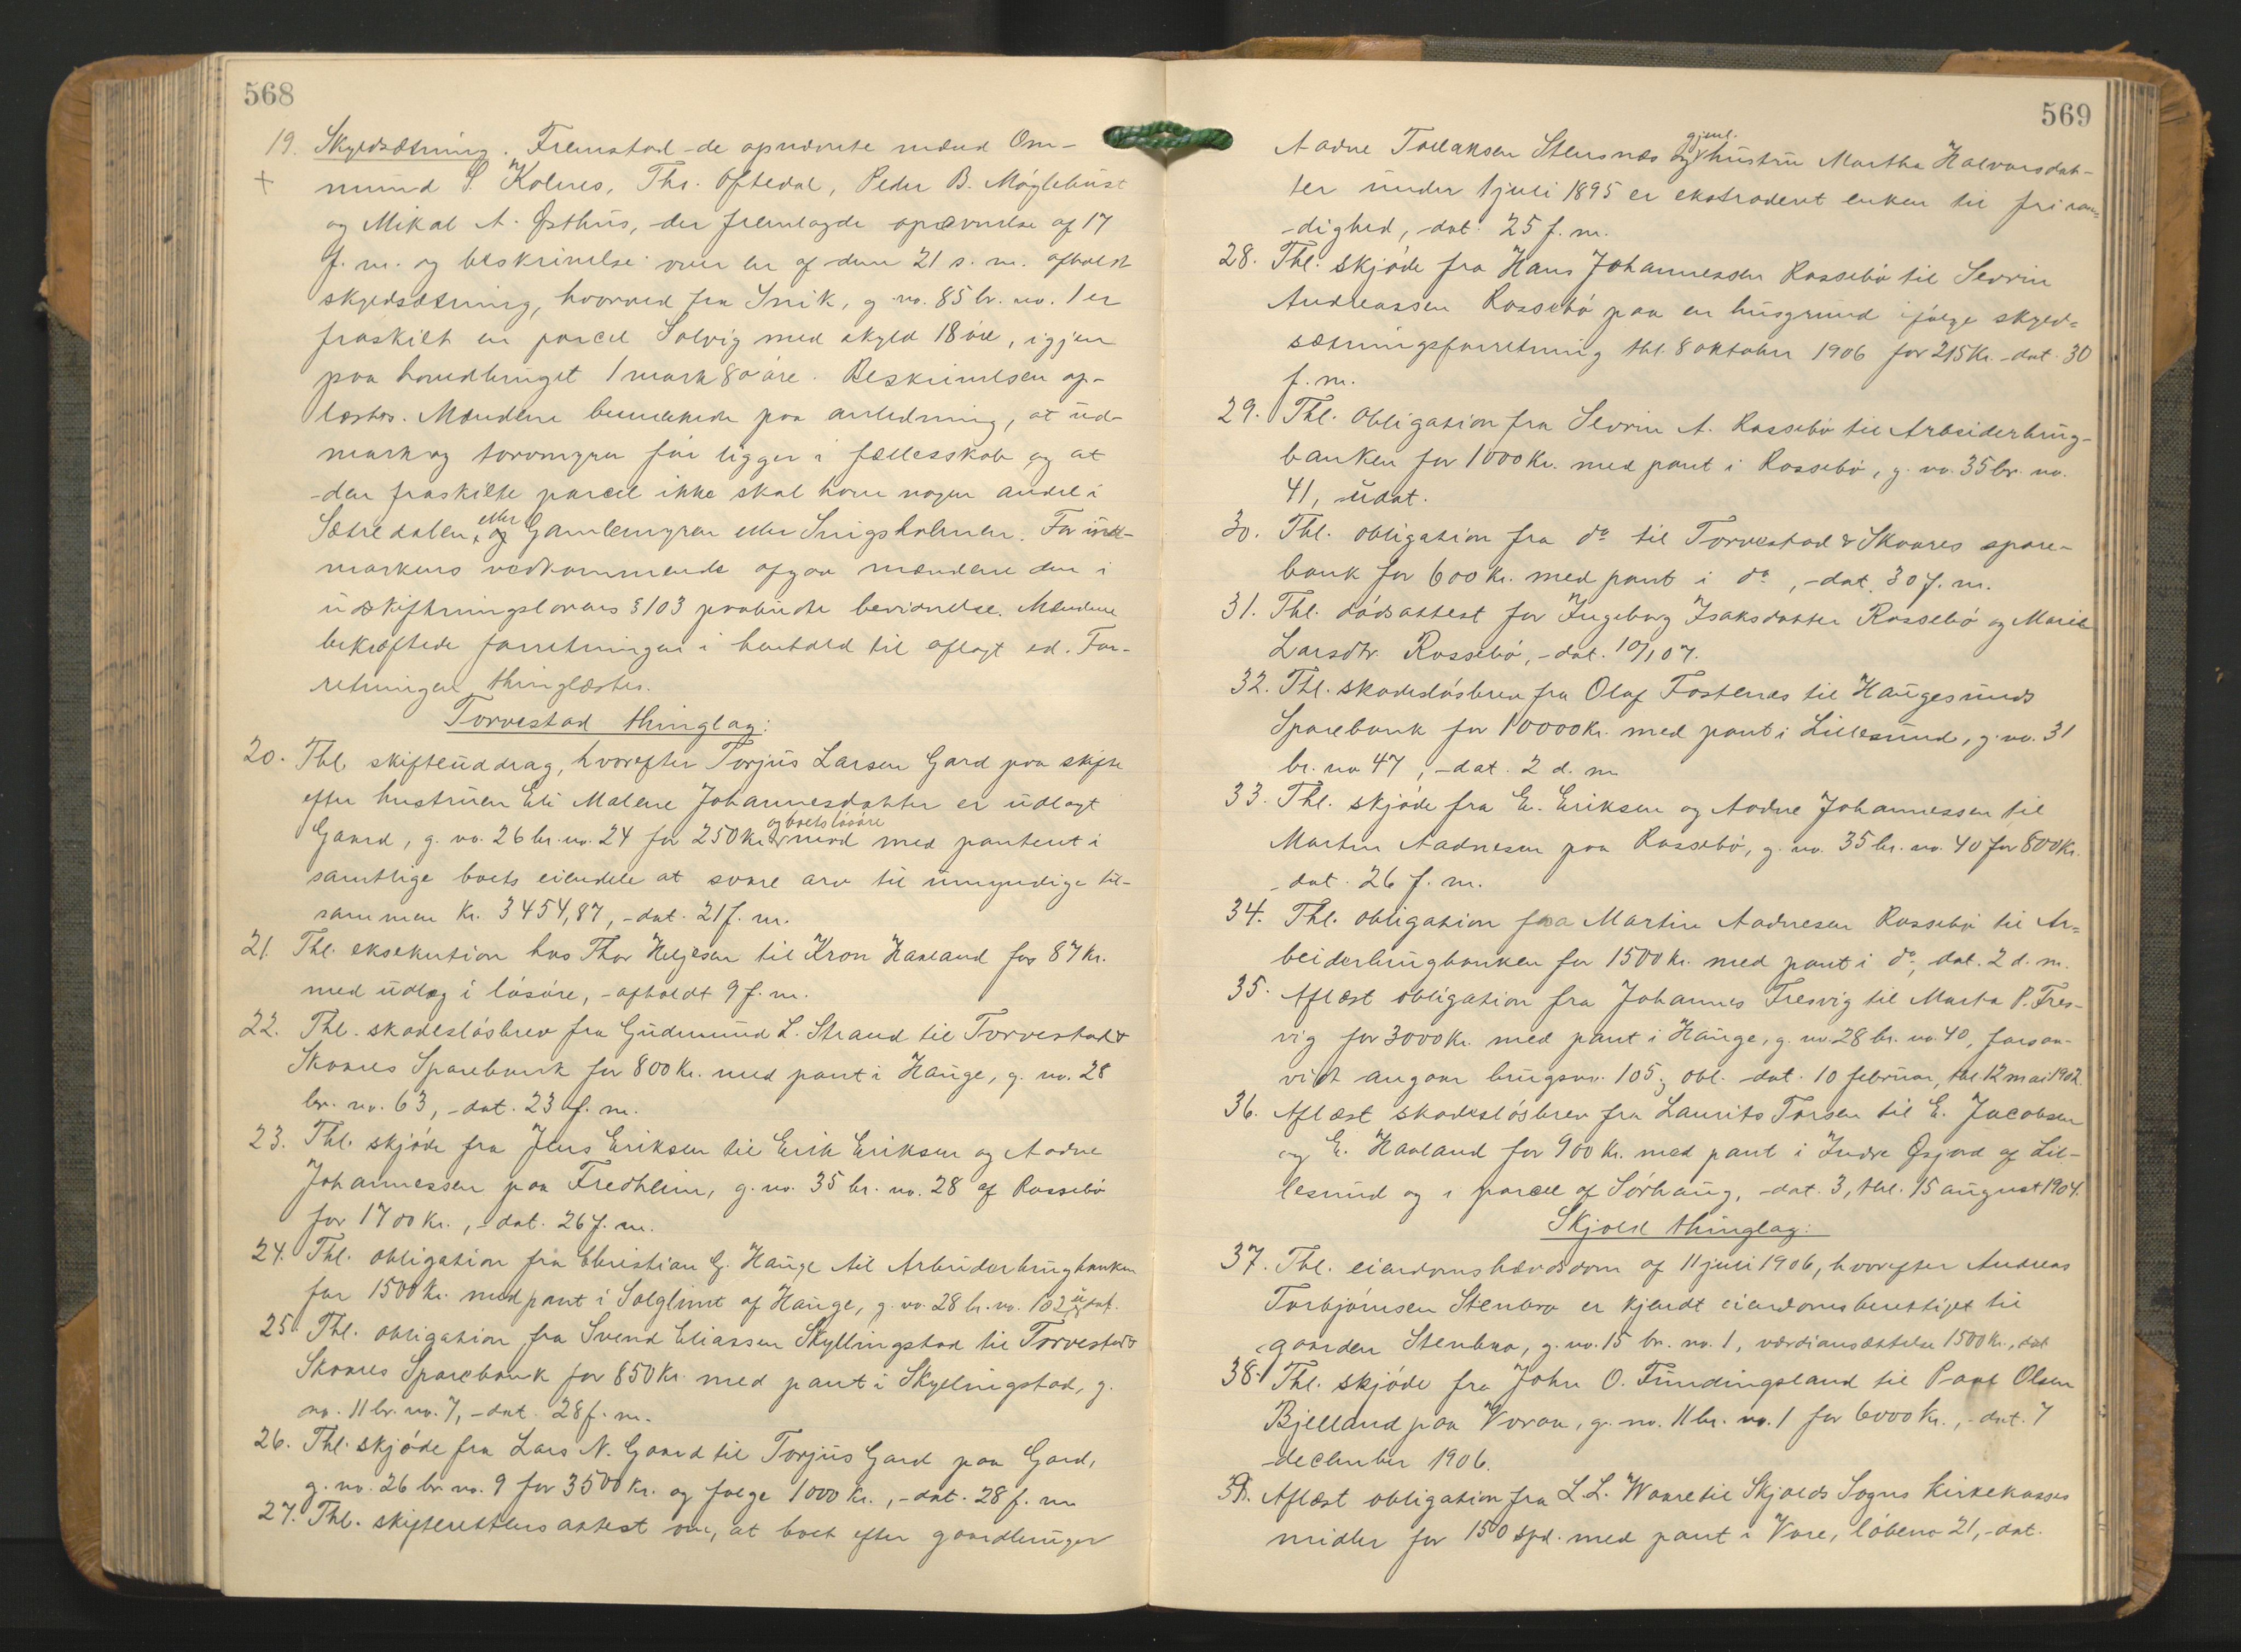 568
19. Skyldsætning. Fremstod de opnævnte mænd Om-
+ mund S. Kolnes, Ths. Oftedal, Peder B. Møglebust
og Mikal A. Østhus, der fremlagde opnævnelse af 17
f. m. og beskrivelse over en af dem 21 s. m. afholdt
skyldsætning, hvorved fra Snik, g. no. 85 br. no. 1 er
fraskilt en parcel Solvig med skyld 18 øre, igjen
paa hovedbruget 1 mark 80 øre. Beskrivelsen op-
læstes. Mændene bemærkede paa anledning, at ud-
mark og torvmyrer for ligger i fællesskab og at
den fraskilte parcel ikke skal have nogen andel i
Sætredalen, eller Gamlemyren eller Snigsholmen. For ind-
markens vedkommende afgav mændene den i
udskiftningslovens § 103 paabudte bevidnelse. Mændene
bekræftede forretningen i henhold til aflagt ed. For-
retningen thinglæstes.
Torvestad thinglag:
20. Thl. skifteuddrag, hvorefter Torjus Larsen Gard paa skifte
efter hustruen Eli Malene Johannesdatter er udlagt
Gaard, g. no. 26 br. no. 24 for 250 kr. og boets løsøre mod med panteret i
samtlige boets eiendele at svare arv til umyndige til-
sammen kr. 3454,87, dat. 21 f. m.
21. Thl. eksekution hos Thor Heljesen til Kron Haaland for 87 kr.
med udlæg i løsøre, afholdt 9 f. m.
22. Thl. skadesløsbrev fra Gudmund L. Strand til Torvestad &
Skaares Sparebank for 800 kr. med pant i Hauge, g. no. 28
br. no. 63, dat. 23 f. m.
23. Thl. skjøde fra Jens Eriksen til Erik Eriksen og Aadne
Johannessen paa Fredheim, g. no. 35 br. no. 28 af Rossebø
for 1700 kr., dat. 26 f. m.
24. Thl. obligation fra Christian G. Hauge til Arbeiderbrugbanken
for 1500 kr. med pant i Solglimt af Hauge, g. no. 28 br. no. 102, udat.
25. Thl. obligation fra Svend Eliassen Skyllingstad til Torvestad &
Skaares Sparebank for 850 kr. med pant i Skyllingstad, g.
no. 11 br. no. 7, dat. 28 f. m.
26. Thl. skjøde fra Lars N. Gaard til Torjus Gard paa Gard,
g. no. 26 br. no. 9 for 3500 kr. og følge 1000 kr., dat. 28 f. m
27. Thl. skifterettens attest om, at boet efter gaardbruger
569
Aadne Tollaksen Stensnæs og gjenl. hustru Martha Halvorsdat-
ter under 1 juli 1895 er ekstraderet enken til fri raa-
dighed, dat. 25 f. m.
28. Thl. skjøde fra Hans Johannessen Rossebø til Sevrin
Andreassen Rossebø paa en husgrund ifølge skyld-
sætningsforretning thl. 8 oktober 1906 for 215 kr. dat. 30
f. m.
29. Thl. obligation fra Sevrin A. Rossebø til Arbeiderbrug-
banken for 1000 kr. med pant i Rossebø, g. no. 35 br. no.
41, udat.
30. Thl. obligation fra do til Torvestad & Skaares spare-
bank for 600 kr. med pant i do, dat. 30 f. m.
31. Thl. dødsattest for Ingeborg Isaksdatter Rossebø og Marie
Larsdtr Rossebø, dat. 10/1 07.
32. Thl. skadesløsbrev fra Olaf Fostenes til Haugesunds
Sparebank for 10000 kr. med pant i Lillesund, g. no. 31
br. no 47, dat. 2 d. m
33. Thl. skjøde fra E. Eriksen og Aadne Johannessen til
Martin Aadnesen paa Rossebø, g. no. 35 br. no. 40 for 800 kr.
dat. 26 f. m.
34. Thl. obligation fra Martin Aadnesen Rossebø til Ar-
beiderbrugbanken for 1500 kr. med pant i do, dat. 2 d. m.
35. Aflæst obligation fra Johannes Tresvig til Marta P. Tres-
vig for 3000 kr. med pant i Hauge, g. no. 28 br. no. 40, forsaa-
vidt angaar brugsno. 105; obl. dat. 10 februar, thl. 12 mai 1902.
36. Aflæst skadesløsbrev fra Laurits Torsen til E. Jacobsen
og E. Haaland for 900 kr. med pant i Indre Øsjord af Lil-
lesund og i parcel af Sørhaug, dat. 3, thl. 15 august 1904.
Skjold thinglag:
37. Thl. eiendomshævdsdom af 11 juli 1906, hvorefter Andreas
Torbjørnsen Stenbro er kjendt eiendomsberettiget til
gaarden Stenbro, g. no. 15 br. no. 1, værdiansættelse 1500 kr., dat
38. Thl. skjøde fra John O. Fundingsland til Paul Olsen
Bjelland paa Voraa, g. no. 11 br. no. 1 for 6000 kr., dat. 7
december 1906.
39. Aflæst obligation fra L. L. Waare til Skjolds Sogns Kirkekasses
midler for 150 Spd. med pant i Vare, løbeno 21, dat.